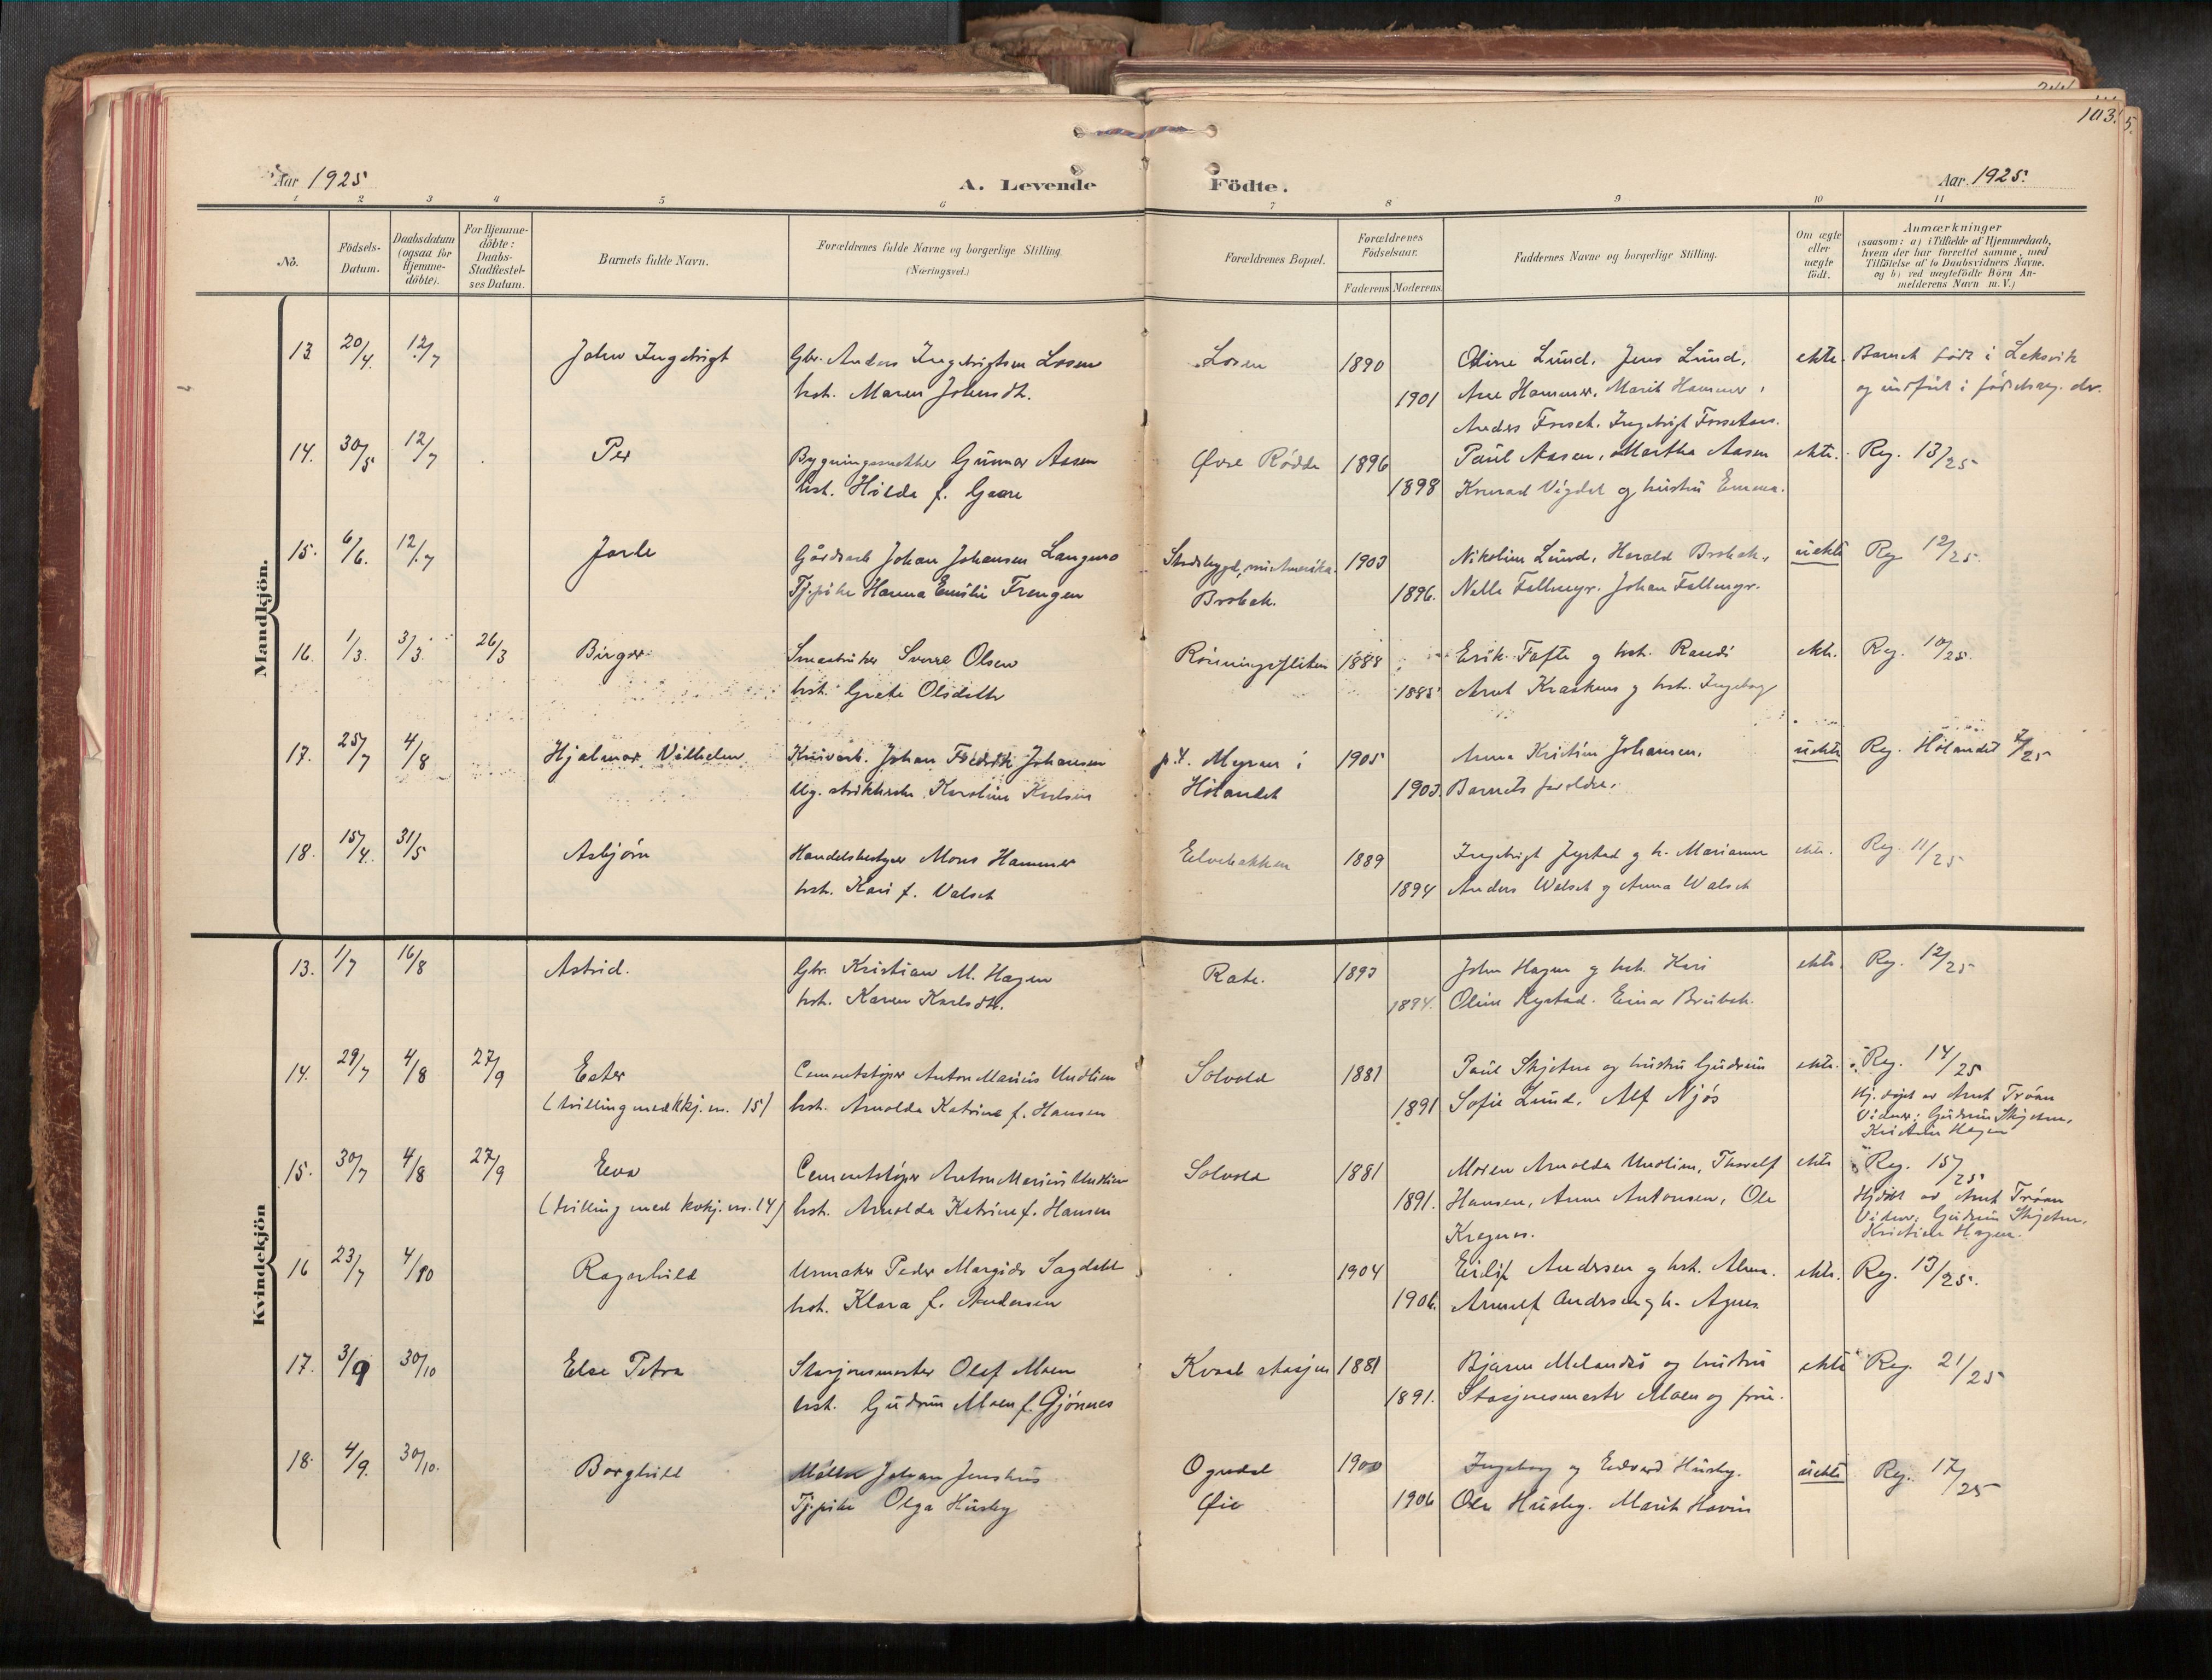 103.
5.
Aar 1925
A. Levende Födte.
Aar 1925.
1 2 3 4 5 6 7 8 9 10 11
No.
Födsels-Datum.
Daabsdatum (ogsaa for Hjemme-döbte).
For Hjemme-döbte: Daabs-Stadfæstel-ses Datum.
Barnets fulde Navn.
Forældrenes fulde Navne og borgerlige Stilling.
(Næringsvei.)
Forældrenes Bopæl.
Forældrenes Födselsaar.
Faderens Moderens
Faddernes Navne og borgerlige Stilling.
Om ægte eller uægte födt.
Anmærkninger
(saasom: a) i Tilfælde af Hjemmedaab, hvem der har forrettet samme, med Tilföielse af to Daabsvidners Navne. og b) ved uægtefödte Börn An-melderens Navn m. V.)
Mandkjön.
13 20/4. 12/7 John Ingebrigt Gbr. Anders Ingebrigtsen Losen Losen 1890 Oline Lund. Jens Lund. ekte. Barnet født i Leksvik
hst. Maren Johnsdtr. 1901 Ane Hammer. Marit Hammer og innført i
Anders
14. 30/5 12/7 Per Bygningssnekker Gunnar Aasen Øvre Rødde 1896 Paul Aasen, Martha Aasen ekte. Reg. 13/25
hst. Hilda f. Gaare 1898 Konrad Vigdal og hustru Emma.
15. 6/6. 12/7 Jarle Gårdsarb. Johan Johansen Langmo Stadsbygd, 1903 Nikoline Lund, Harald Brobak, uekte Reg 12/25.
Tj.pike Hanna Emilie Frengen Brobak. 1896. Nelle Fallmyr. Johan Fallmyr.
16. 1/3. 3/3. 26/3 Birger Småbruker Sverre Olsen 1888 Erik Tofte g hst. Randi ekte. Reg. 10/25.
hst. Grete Olsdatter 1885 Arnt g hst. Ingeborg
17. 25/7 4/8 Hjalmar Vilhelm Johan Fredrik Johansen p.t. Myran i 1905 Anna Kristine Johansen. uekte Reg. Hølandet 7/25
Ug. Karoline Karlsen Hølandet 1903. Barnets foreldre.
18. 15/4. 31/5 Asbjørn Handelsbestyrer Mons Hammer Elvebakken 1889 Ingebrigt Jystad g h. Marianne ekte. Reg. 11/25
hst. Kari f. Valset 1894 Anders Walset g Anna Walset
Kvindekjön
13. 1/7 16/8 Astrid. Gbr. Kristian M. Hagen Rate. 1893 John Hagen g hst. Kari ekte. Reg. 12/25
hst. Karen Karlsdtr. 1894. Oline Rystad. Einar Brubak.
14. 29/7 4/8 27/9 Ester Cementstøper Anton Marius Undlien Solvold 1881 Paul Skjetne og hustru Gudrun ekte. Reg. 14/25
(tvilling med kvkj. nr. 15) hst. Arnolda Katrine f. Hansen 1891 Sofie Lund. Alf Njøs Hj. døpt av Arnt Trøan
Vidner: Gudrun Skjetne,
Kristian Hagen
15. 30/7 4/8 27/9 Eva Cementstøper Anton Marius Undlien Solvold 1881 Moren Arnolda Undlien, Thoralf ekte Reg. 15/25
(tvilling med kvkj. nr. 14) hst. Arnolda Katrine f. Hansen 1891. Hansen, Anna Antonsen, Ole av Arnt Trøan
Kregnes. Vidner: Gudrun Skjetne,
Kristian Hagen.
16 23/7 4/10 Ragnhild Urmaker Peder Margido Sagdahl 1904 Eilif Andersen g hst. Alma. ekte. Reg. 13/25.
hst. Klara f. Andersen 1906. Arnulf Andersen g h. Agnes.
17. 3/9 30/10 Else Petra Stasjonsmester Olef Moen Kvaal stasjon 1881 Bjarne Melandsø og hustru ekte Reg. 21/25
hst. Gudrun Moen f. Gjønnes 1891. Stasjonsmester Moen og frue.
18. 4/9. 30/10. Borghild Møller Johan Jenshus Ogndal 1900 Ingeborg og Edvard Husby. uekte Reg. 17/25
Tj.pike Olga Husby Øie 1906 Ole Husby. Marit Hovin